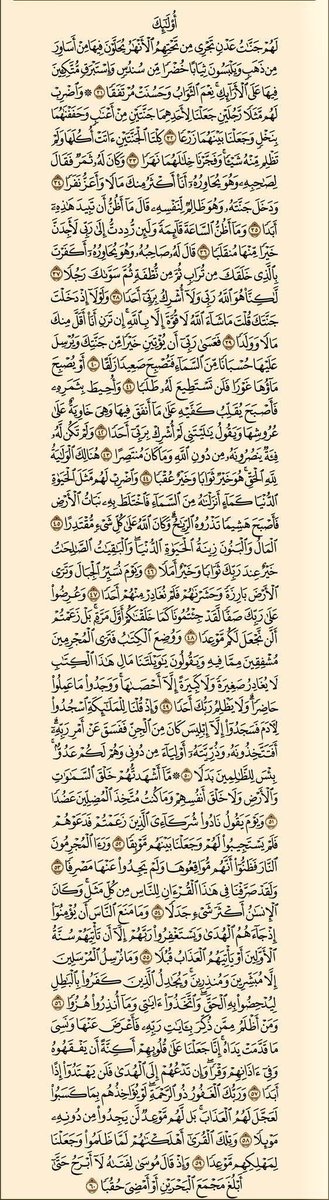 أُوْلَٰٓئِكَ
لَهُمۡ جَنَّٰتُ عَدۡنٖ تَجۡرِي مِن تَحۡتِهِمُ ٱلۡأَنۡهَٰرُ يُحَلَّوۡنَ فِيهَا مِنۡ أَسَاوِرَ
مِن ذَهَبٖ وَيَلۡبَسُونَ ثِيَابًا خُضۡرٗا مِّن سُندُسٖ وَإِسۡتَبۡرَقٖ مُّتَّكِـِٔينَ
فِيهَا عَلَى ٱلۡأَرَآئِكِۚ نِعۡمَ ٱلثَّوَابُ وَحَسُنَتۡ مُرۡتَفَقٗا ٣١ ۞ وَٱضۡرِبۡ
لَهُم مَّثَلٗا رَّجُلَيۡنِ جَعَلۡنَا لِأَحَدِهِمَا جَنَّتَيۡنِ مِنۡ أَعۡنَٰبٖ وَحَفَفۡنَٰهُمَا
بِنَخۡلٖ وَجَعَلۡنَا بَيۡنَهُمَا زَرۡعٗا ٣٢ كِلۡتَا ٱلۡجَنَّتَيۡنِ ءَاتَتۡ أُكُلَهَا وَلَمۡ
تَظۡلِم مِّنۡهُ شَيۡـٔٗاۚ وَفَجَّرۡنَا خِلَٰلَهُمَا نَهَرٗا ٣٣ وَكَانَ لَهُۥ ثَمَرٞ فَقَالَ
لِصَٰحِبِهِۦ وَهُوَ يُحَاوِرُهُۥٓ أَنَا۠ أَكۡثَرُ مِنكَ مَالٗا وَأَعَزُّ نَفَرٗا ٣٤
وَدَخَلَ جَنَّتَهُۥ وَهُوَ ظَالِمٞ لِّنَفۡسِهِۦ قَالَ مَآ أَظُنُّ أَن تَبِيدَ هَٰذِهِۦٓ
أَبَدٗا ٣٥ وَمَآ أَظُنُّ ٱلسَّاعَةَ قَآئِمَةٗ وَلَئِن رُّدِدتُّ إِلَىٰ رَبِّي لَأَجِدَنَّ
خَيۡرٗا مِّنۡهَا مُنقَلَبٗا ٣٦ قَالَ لَهُۥ صَاحِبُهُۥ وَهُوَ يُحَاوِرُهُۥٓ أَكَفَرۡتَ
بِٱلَّذِي خَلَقَكَ مِن تُرَابٖ ثُمَّ مِن نُّطۡفَةٖ ثُمَّ سَوَّىٰكَ رَجُلٗا ٣٧
لَّٰكِنَّا۠ هُوَ ٱللَّهُ رَبِّي وَلَآ أُشۡرِكُ بِرَبِّيٓ أَحَدٗا ٣٨ وَلَوۡلَآ إِذۡ دَخَلۡتَ
جَنَّتَكَ قُلۡتَ مَا شَآءَ ٱللَّهُ لَا قُوَّةَ إِلَّا بِٱللَّهِۚ إِن تَرَنِ أَنَا۠ أَقَلَّ مِنكَ
مَالٗا وَوَلَدٗا ٣٩ فَعَسَىٰ رَبِّيٓ أَن يُؤۡتِيَنِ خَيۡرٗا مِّن جَنَّتِكَ وَيُرۡسِلَ
عَلَيۡهَا حُسۡبَانٗا مِّنَ ٱلسَّمَآءِ فَتُصۡبِحَ صَعِيدٗا زَلَقًا ٤٠ أَوۡ يُصۡبِحَ
مَآؤُهَا غَوۡرٗا فَلَن تَسۡتَطِيعَ لَهُۥ طَلَبٗا ٤١ وَأُحِيطَ بِثَمَرِهِۦ
فَأَصۡبَحَ يُقَلِّبُ كَفَّيۡهِ عَلَىٰ مَآ أَنفَقَ فِيهَا وَهِيَ خَاوِيَةٌ عَلَىٰ
عُرُوشِهَا وَيَقُولُ يَٰلَيۡتَنِي لَمۡ أُشۡرِكۡ بِرَبِّيٓ أَحَدٗا ٤٢ وَلَمۡ تَكُن لَّهُۥ
فِئَةٞ يَنصُرُونَهُۥ مِن دُونِ ٱللَّهِ وَمَا كَانَ مُنتَصِرًا ٤٣ هُنَالِكَ ٱلۡوَلَٰيَةُ
لِلَّهِ ٱلۡحَقِّۚ هُوَ خَيۡرٞ ثَوَابٗا وَخَيۡرٌ عُقۡبٗا ٤٤ وَٱضۡرِبۡ لَهُم مَّثَلَ ٱلۡحَيَوٰةِ
ٱلدُّنۡيَا كَمَآءٍ أَنزَلۡنَٰهُ مِنَ ٱلسَّمَآءِ فَٱخۡتَلَطَ بِهِۦ نَبَاتُ ٱلۡأَرۡضِ
فَأَصۡبَحَ هَشِيمٗا تَذۡرُوهُ ٱلرِّيَٰحُۗ وَكَانَ ٱللَّهُ عَلَىٰ كُلِّ شَيۡءٖ مُّقۡتَدِرًا ٤٥
ٱلۡمَالُ وَٱلۡبَنُونَ زِينَةُ ٱلۡحَيَوٰةِ ٱلدُّنۡيَاۖ وَٱلۡبَٰقِيَٰتُ ٱلصَّٰلِحَٰتُ
خَيۡرٌ عِندَ رَبِّكَ ثَوَابٗا وَخَيۡرٌ أَمَلٗا ٤٦ وَيَوۡمَ نُسَيِّرُ ٱلۡجِبَالَ وَتَرَى
ٱلۡأَرۡضَ بَارِزَةٗ وَحَشَرۡنَٰهُمۡ فَلَمۡ نُغَادِرۡ مِنۡهُمۡ أَحَدٗا ٤٧ وَعُرِضُواْ
عَلَىٰ رَبِّكَ صَفّٗا لَّقَدۡ جِئۡتُمُونَا كَمَا خَلَقۡنَٰكُمۡ أَوَّلَ مَرَّةِۭۚ بَلۡ زَعَمۡتُمۡ
أَلَّن نَّجۡعَلَ لَكُم مَّوۡعِدٗا ٤٨ وَوُضِعَ ٱلۡكِتَٰبُ فَتَرَى ٱلۡمُجۡرِمِينَ
مُشۡفِقِينَ مِمَّا فِيهِ وَيَقُولُونَ يَٰوَيۡلَتَنَا مَالِ هَٰذَا ٱلۡكِتَٰبِ
لَا يُغَادِرُ صَغِيرَةٗ وَلَا كَبِيرَةً إِلَّآ أَحۡصَىٰهَاۚ وَوَجَدُواْ مَا عَمِلُواْ
حَاضِرٗاۗ وَلَا يَظۡلِمُ رَبُّكَ أَحَدٗا ٤٩ وَإِذۡ قُلۡنَا لِلۡمَلَٰٓئِكَةِ ٱسۡجُدُواْ
لِأٓدَمَ فَسَجَدُوٓاْ إِلَّآ إِبۡلِيسَ كَانَ مِنَ ٱلۡجِنِّ فَفَسَقَ عَنۡ أَمۡرِ رَبِّهِۦٓۗ
أَفَتَتَّخِذُونَهُۥ وَذُرِّيَّتَهُۥٓ أَوۡلِيَآءَ مِن دُونِي وَهُمۡ لَكُمۡ عَدُوُّۢۚ
بِئۡسَ لِلظَّٰلِمِينَ بَدَلٗا ٥٠ ۞ مَّآ أَشۡهَدتُّهُمۡ خَلۡقَ ٱلسَّمَٰوَٰتِ
وَٱلۡأَرۡضِ وَلَا خَلۡقَ أَنفُسِهِمۡ وَمَا كُنتُ مُتَّخِذَ ٱلۡمُضِلِّينَ عَضُدٗا
٥١ وَيَوۡمَ يَقُولُ نَادُواْ شُرَكَآءِيَ ٱلَّذِينَ زَعَمۡتُمۡ فَدَعَوۡهُمۡ
فَلَمۡ يَسۡتَجِيبُواْ لَهُمۡ وَجَعَلۡنَا بَيۡنَهُم مَّوۡبِقٗا ٥٢ وَرَءَا ٱلۡمُجۡرِمُونَ
ٱلنَّارَ فَظَنُّوٓاْ أَنَّهُم مُّوَاقِعُوهَا وَلَمۡ يَجِدُواْ عَنۡهَا مَصۡرِفٗا ٥٣
وَلَقَدۡ صَرَّفۡنَا فِي هَٰذَا ٱلۡقُرۡءَانِ لِلنَّاسِ مِن كُلِّ مَثَلٖۚ وَكَانَ
ٱلۡإِنسَٰنُ أَكۡثَرَ شَيۡءٖ جَدَلٗا ٥٤ وَمَا مَنَعَ ٱلنَّاسَ أَن يُؤۡمِنُوٓاْ
إِذۡ جَآءَهُمُ ٱلۡهُدَىٰ وَيَسۡتَغۡفِرُواْ رَبَّهُمۡ إِلَّآ أَن تَأۡتِيَهُمۡ سُنَّةُ
ٱلۡأَوَّلِينَ أَوۡ يَأۡتِيَهُمُ ٱلۡعَذَابُ قُبُلٗا ٥٥ وَمَا نُرۡسِلُ ٱلۡمُرۡسَلِينَ
إِلَّا مُبَشِّرِينَ وَمُنذِرِينَۚ وَيُجَٰدِلُ ٱلَّذِينَ كَفَرُواْ بِٱلۡبَٰطِلِ
لِيُدۡحِضُواْ بِهِ ٱلۡحَقَّۖ وَٱتَّخَذُوٓاْ ءَايَٰتِي وَمَآ أُنذِرُواْ هُزُوٗا
٥٦ وَمَنۡ أَظۡلَمُ مِمَّن ذُكِّرَ بِـَٔايَٰتِ رَبِّهِۦ فَأَعۡرَضَ عَنۡهَا وَنَسِيَ
مَا قَدَّمَتۡ يَدَاهُۚ إِنَّا جَعَلۡنَا عَلَىٰ قُلُوبِهِمۡ أَكِنَّةً أَن يَفۡقَهُوهُ
وَفِيٓ ءَاذَانِهِمۡ وَقۡرٗاۖ وَإِن تَدۡعُهُمۡ إِلَى ٱلۡهُدَىٰ فَلَن يَهۡتَدُوٓاْ إِذًا
أَبَدٗا ٥٧ وَرَبُّكَ ٱلۡغَفُورُ ذُو ٱلرَّحۡمَةِۖ لَوۡ يُؤَاخِذُهُم بِمَا كَسَبُواْ
لَعَجَّلَ لَهُمُ ٱلۡعَذَابَۚ بَل لَّهُم مَّوۡعِدٞ لَّن يَجِدُواْ مِن دُونِهِۦ
مَوۡئِلٗا ٥٨ وَتِلۡكَ ٱلۡقُرَىٰٓ أَهۡلَكۡنَٰهُمۡ لَمَّا ظَلَمُواْ وَجَعَلۡنَا
لِمَهۡلِكِهِم مَّوۡعِدٗا ٥٩ وَإِذۡ قَالَ مُوسَىٰ لِفَتَىٰهُ لَآ أَبۡرَحُ حَتَّىٰٓ
أَبۡلُغَ مَجۡمَعَ ٱلۡبَحۡرَيۡنِ أَوۡ أَمۡضِيَ حُقُبٗا ٦٠